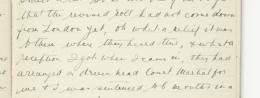 that the revised roll, had not come down
from London yet, oh what a relief it was
to them when they heard this, & what a
reception I got when I came in, they had
arranged a drum head Court Martial for
me & I was sentenced to 6 months in a